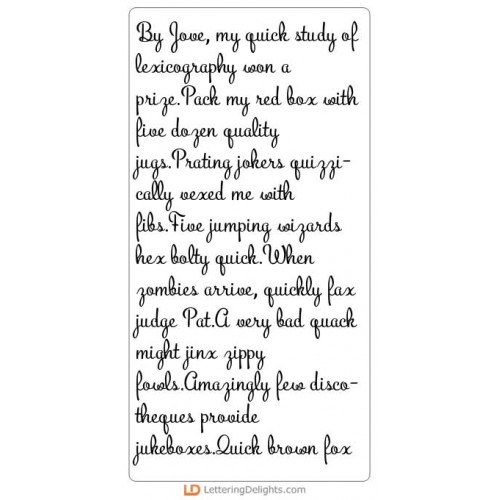 By Jove, my quick study of
lexicography won a
prize.Pack my red box with
five dozen quality
jugs.Prating jokers quizzi-
cally vexed me with
fibs.Five jumping wizards
hex bolty quick.When
zombies arrive, quickly fax
judge Pat.A very bad quack
might jinx zippy
fowls.Amazingly few disco-
theques provide
jukeboxes.Quick brown fox
LD LetteringDelights.com